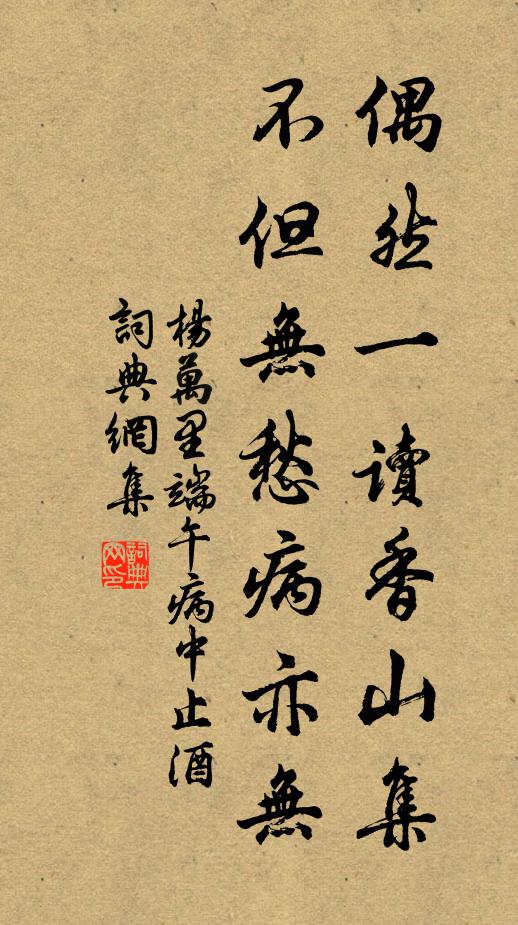 偶然一讀香山集
不但無愁病亦無
楊萬里端午病中止酒
詞典網集
詞典
网印